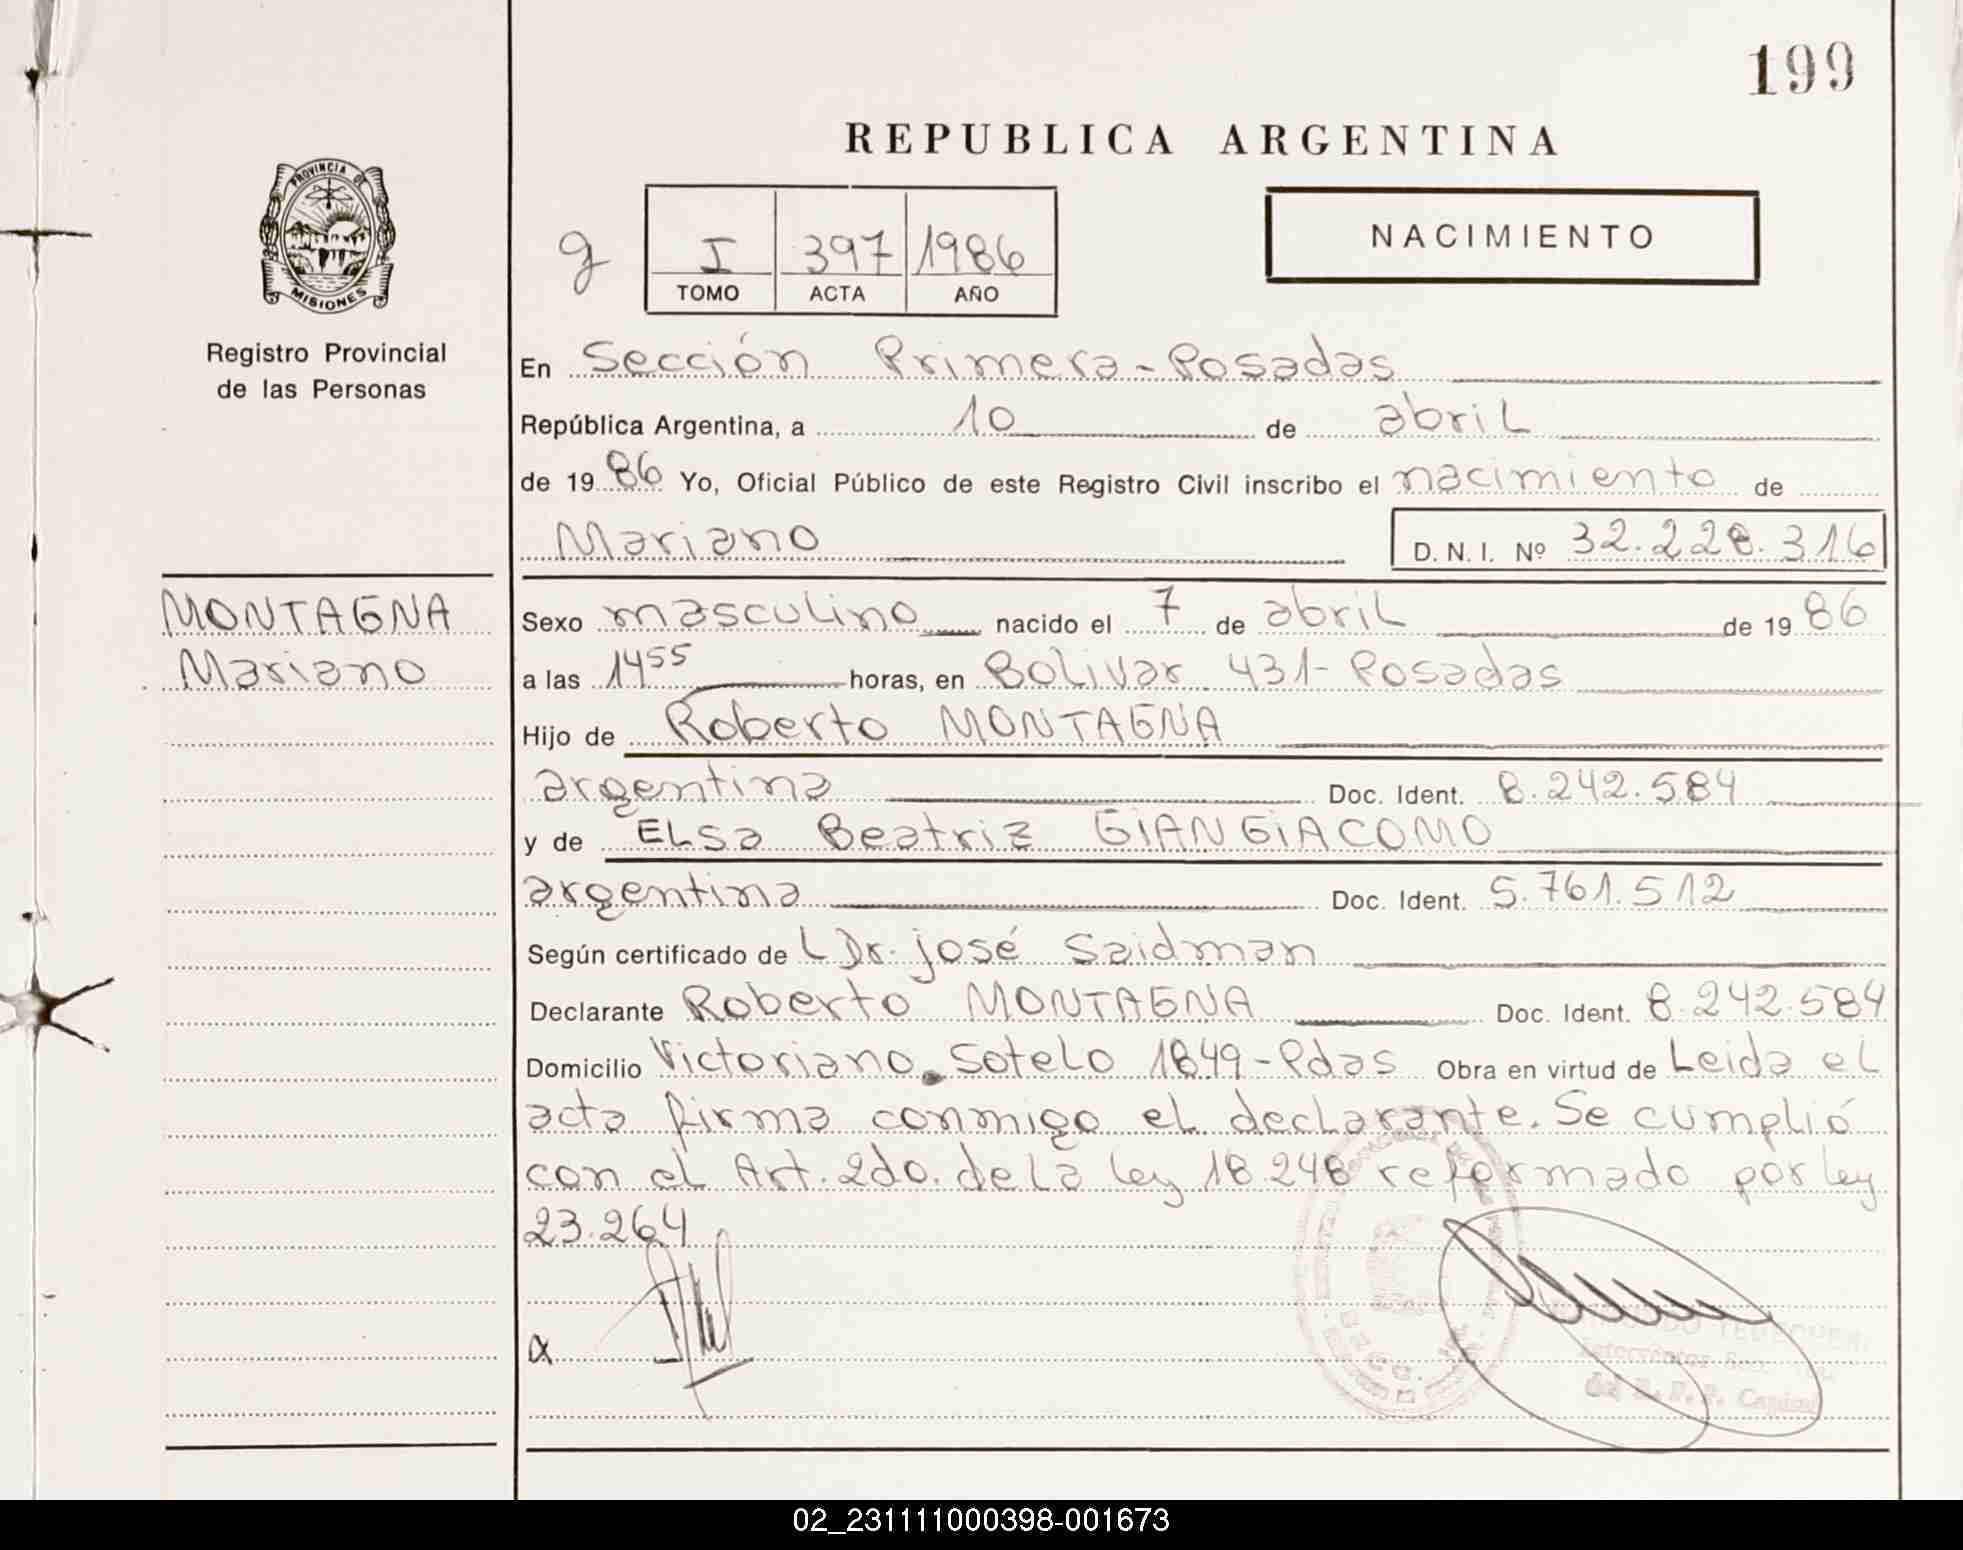 199
REPUBLICA ARGENTINA
PROVINCIA DE
MISIONES
Registro Provincial
de las Personas
g
I 397 1986
TOMO ACTA AÑO
NACIMIENTO
En Sección Primera - Posadas
República Argentina, a 10 de abril
de 19 86 Yo, Oficial Público de este Registro Civil inscribo el nacimiento de
Mariano D. N. I. Nº 32.228.316
MONTAGNA
Mariano
Sexo masculino nacido el 7 de abril de 19 86
a las 14 55 horas, en Bolivar 431 - Posadas
Hijo de Roberto MONTAGNA
argentina Doc. Ident. 8.242.584
y de Elsa Beatriz GIANGIACOMO
argentina Doc. Ident. 5.761.512
Según certificado de L Dr. José Saidman
Declarante Roberto MONTAGNA Doc. Ident. 8.242.584
Domicilio Victoriano Sotelo 1849 - Pdas Obra en virtud de Leida el
acta firma conmigo el declarante. Se cumplió
con el Art. 2do. de la ley 18.248 reformado por ley
23.264
del R. P. P. Capital
02_231111000398-001673